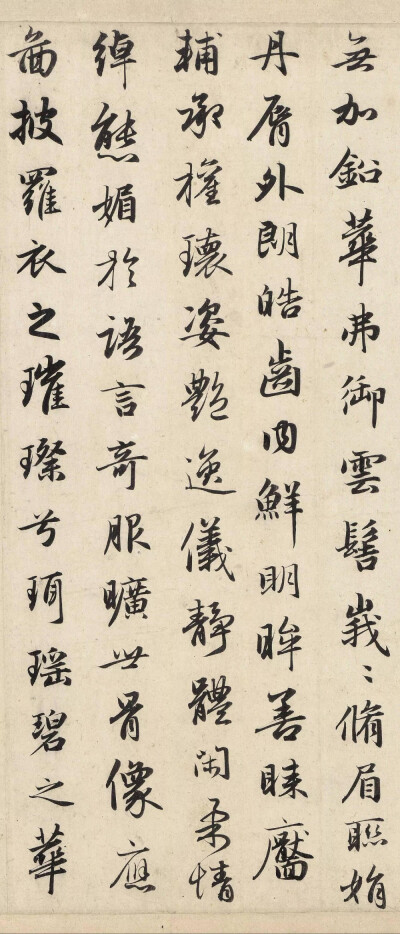 無加鉛華弗御雲髻峩〻脩眉聯娟
丹脣外朗皓齒内鮮明眸善睞靨
輔承權瓌姿艷逸儀靜體閑柔情
綽態媚於語言奇服曠世骨像應
啚披羅衣之璀璨兮珥瑶碧之華